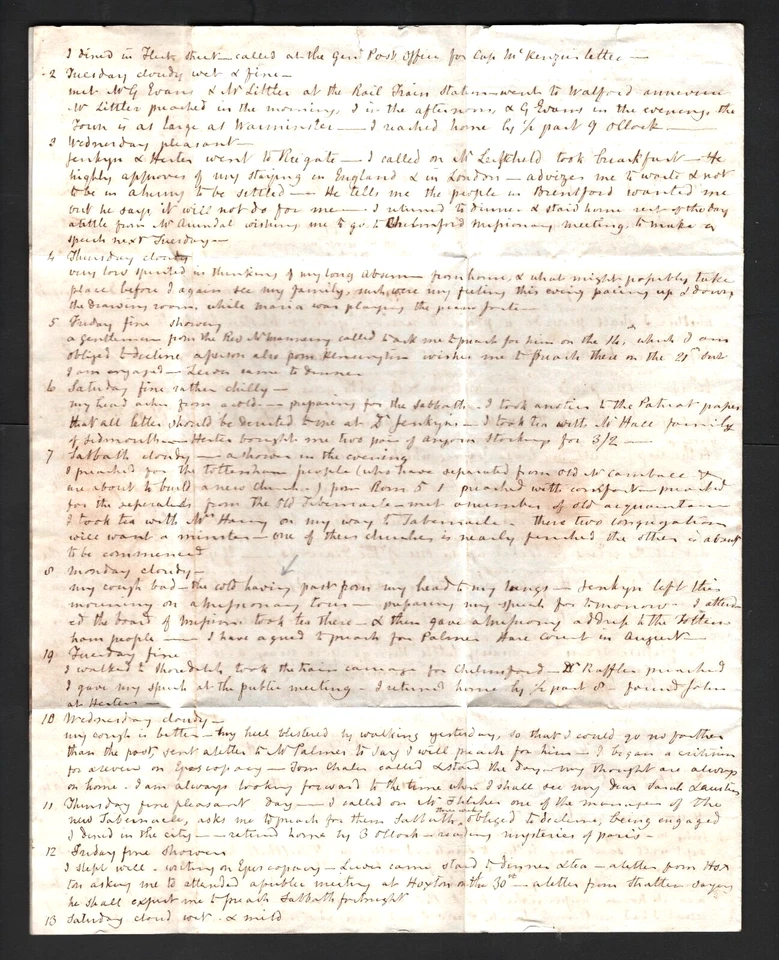 I dined in Fleet street - called at the Genl Post Office for Cap McKenzies letter -
2 Tuesday cloudy wet & fine -
met Mr G Evans & Mr Littler at the Rail Train Station - went to Watford
Mr Littler preached in the morning, I in the afternoon, & G Evans in the evening, the
Town is as large as Warminster - I reached home by ½ past 9 oClock -
3 Wednesday pleasant -
Jenkyn & Hester went to Reigate - I called on Mr took breakfast - He
highly approves of my staying in England & in London - advizes me to waite & not
to be in a hurry to be settled - He tells me the people in Brentford wanted me
but he says it will not do for me - I returned to dinner & staid home rest of the day
a letter from Mr Arundal wishing me to go to Chelmsford missionary meeting, to make a
speech next Tuesday -
4 Thursday cloudy
very low spirited in thinking of my long absence from home, & what might possibly take
place before I again see my family, such were my feeling this eveing pacing up & down
the drawing room, while maria was playing the piano forte -
5 Friday fine showery
a gentleman from the Rev Mr called to ask me to preach for him on the 14, which I am
obliged to decline, a person also from Kensington wishes me to preach there on the 21st but
I am engaged - Lewis came to dinner
6 Saturday fine rather chilly -
my head aches from a cold - preparing for the Sabbath - I took a notice to the Patriot paper
that all letter should be directed to me at Dr Jenkyns - I took tea with Mr Hall family
of Sidmouth - Hester bought me two pair of angora stockings for 3/2 -
7 Sabbath cloudy - a shower in the evening
I preached for the tottenham people (who have separated from Old Mr Cambell &
are about to build a new church -) from Rom 5 1 preached with comfort - preached
for the seperatists from the Old Tabernacle - met a number of old acquaintance
I took tea with Mrs on my way to Tabernacle - these two congregations
will want a minister - one of their churches is nearly finished the other is about
to be commenced
8 Monday cloudy -
my cough bad - the cold having past from my head to my lungs - Jenkyn left this
mourning on a missionary tour - preparing my speech for tomorrow - I attend
ed the board of missions took tea there - & then gave a missionary address to the Totten
ham people - I have agreed to preach for Palmer Hare Court in August -
19 Tuesday fine
I walked to Shoreditch took the train carriage for Chelmsford - Dr Raffles preached
I gave my speech at the public meeting - I returned home by ½ past 8 - found John
at Hesters -
10 Wednesday cloudy -
my cough is better - my heel blistered by walking yesterday, so that I could go no farther
than the post, sent a letter to Mr Palmer to say I will preach for him - I began a criticism
for a review on Episcopacy - Tom Chales called & stand the day - my thought are always
on home - I am always looking forward to the time when I shall see my dear Sarah
11 Thursday fine pleasant day - I called on Mr Fletcher one of the managers of The
new Tabernacle, asks me to preach for them Sabbath, three weeks obliged to decline, being engaged
I dined in the city - returned home by 3 oClock - reading mysteries of paris -
12 Friday fine showers
I slept well - writing on Episcopacy - Lewis came staid to dinner & tea - a letter from Hox
ton asking me to attended a public meeting at Hoxton on the 30st - a letter from Thatten saying
he shall expect me to preach Sabbath fortnight
13 Saturday cloud wet & mild